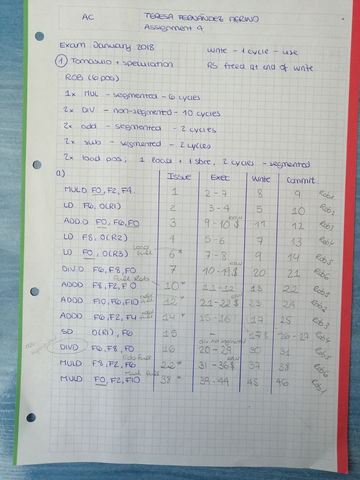 AC TERESA FERNÁNDEZ MERINO
Assignment 4
Exam January 2018 write - 1 cycle - use
① Tomasulo + speculation RS freed at end of write
ROB (6 pos)
1x MUL - segmented - 6 cycles
2x DIV - non-segmented - 10 cycles
2x add - segmented - 2 cycles
2x sub - segmented - 2 cycles
2x load pos, 1 load + 1 store, 2 cycles - segmented
a) Issue Exec Write Commit
MULD F0, F2, F4 1 2-7 8 9 Rob1
LD F6, 0(R1) 2 3-4 5 10 Rob2
ADDD F0, F6, F0 3 9-10 11 12 Rob3
LD F8, 0(R2) 4 5-6 7 13
LD F0, 0(R3) 6* 7-8 9 14 Rob5
DIVD F6, F8, F0 7 10-19 20 21 Rob6
ADDD F8, F2, F10 10* 11-12 13 22 Rob1
ADDD F10, F6, F10 12* 21-22 23 24 Rob2
ADDD F6, F2, F4 14* 15-16 17 25 Rob3
SD 0(R1), F6 15 -
DIVD F6, F8, F0 16 20-29 30 31 Rob5
MULD F8, F2, F6 22* 31-36 37 38 Rob6
MULD F0, F2, F10 38* 39-44 45 46 Rob1